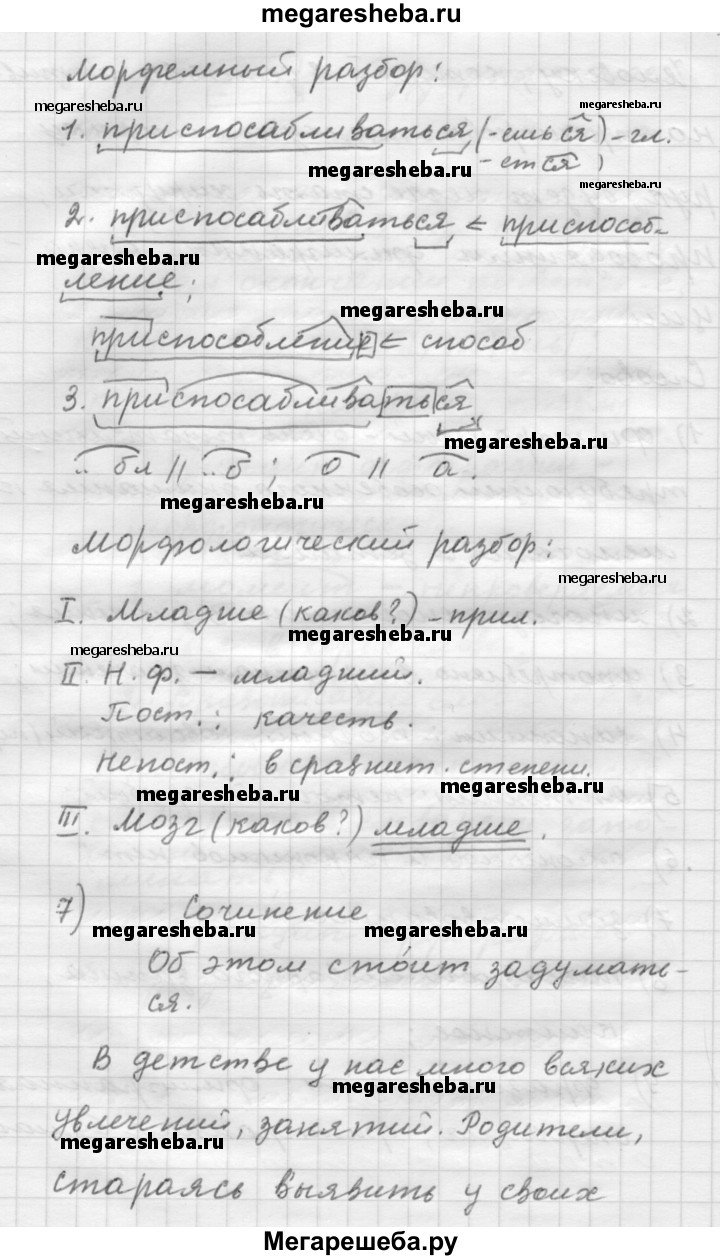 megaresheba.ru
Морфемный разбор:
megaresheba.ru megaresheba.ru
1. приспосабливаться (-ешься) - гл.
-ется)
megaresheba.ru
2. приспосабливаться < приспособ-
megaresheba.ru
ление;
megaresheba.ru
приспособление < способ
3. приспосабливаться
megaresheba.ru
.. бл // ..б ; о // а .
megaresheba.ru
Морфологический разбор:
megaresheba.ru
I. Младше (каков?) - прил.
megaresheba.ru
megaresheba.ru
II. Н. ф. — младший.
Пост.: качеств.
Непост.: в сравнит. степени.
megaresheba.ru megaresheba.ru
III. Мозг (каков?) младше .
7) Сочинение
megaresheba.ru megaresheba.ru
Об этом сто́ит задумать-
ся.
В детстве у нас много всяких
megaresheba.ru
увлечений, занятий. Родители,
megaresheba.ru
стараясь выявить у своих
Мегарешеба.ру